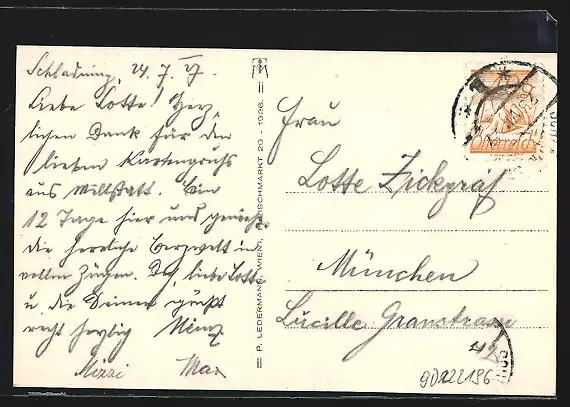 Schladming, 24. 7. 27.
Liebe Lotte! Herz-
lichen Dank für den
lieben Kartengruß
aus Millstatt. Bin
12 Tage hier und genieße
die herrliche Bergwelt in
vollen Zügen. Dich, liebe Lotte
u. die Deinen grüßt
recht herzlich
Mizzi Max
P. LEDERMANN, WIEN I, FLEISCHMARKT 20 - 1926.
Frau
Lotte Zickgraf
München
Lucille Granstrasse
42
9D122196